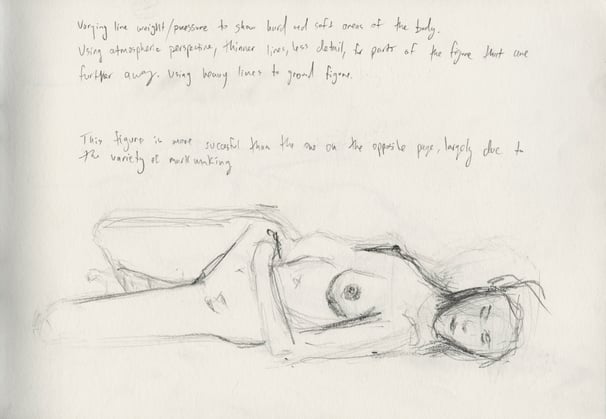 Varying line weight/pressure to show hard and soft areas of the body.
Using atmospheric perspective, thinner lines, less detail, for parts of the figure that are
further away. Using heavy lines to ground figure.
This figure is more succesful than the one on the opposite page, largely due to
the variety of mark making